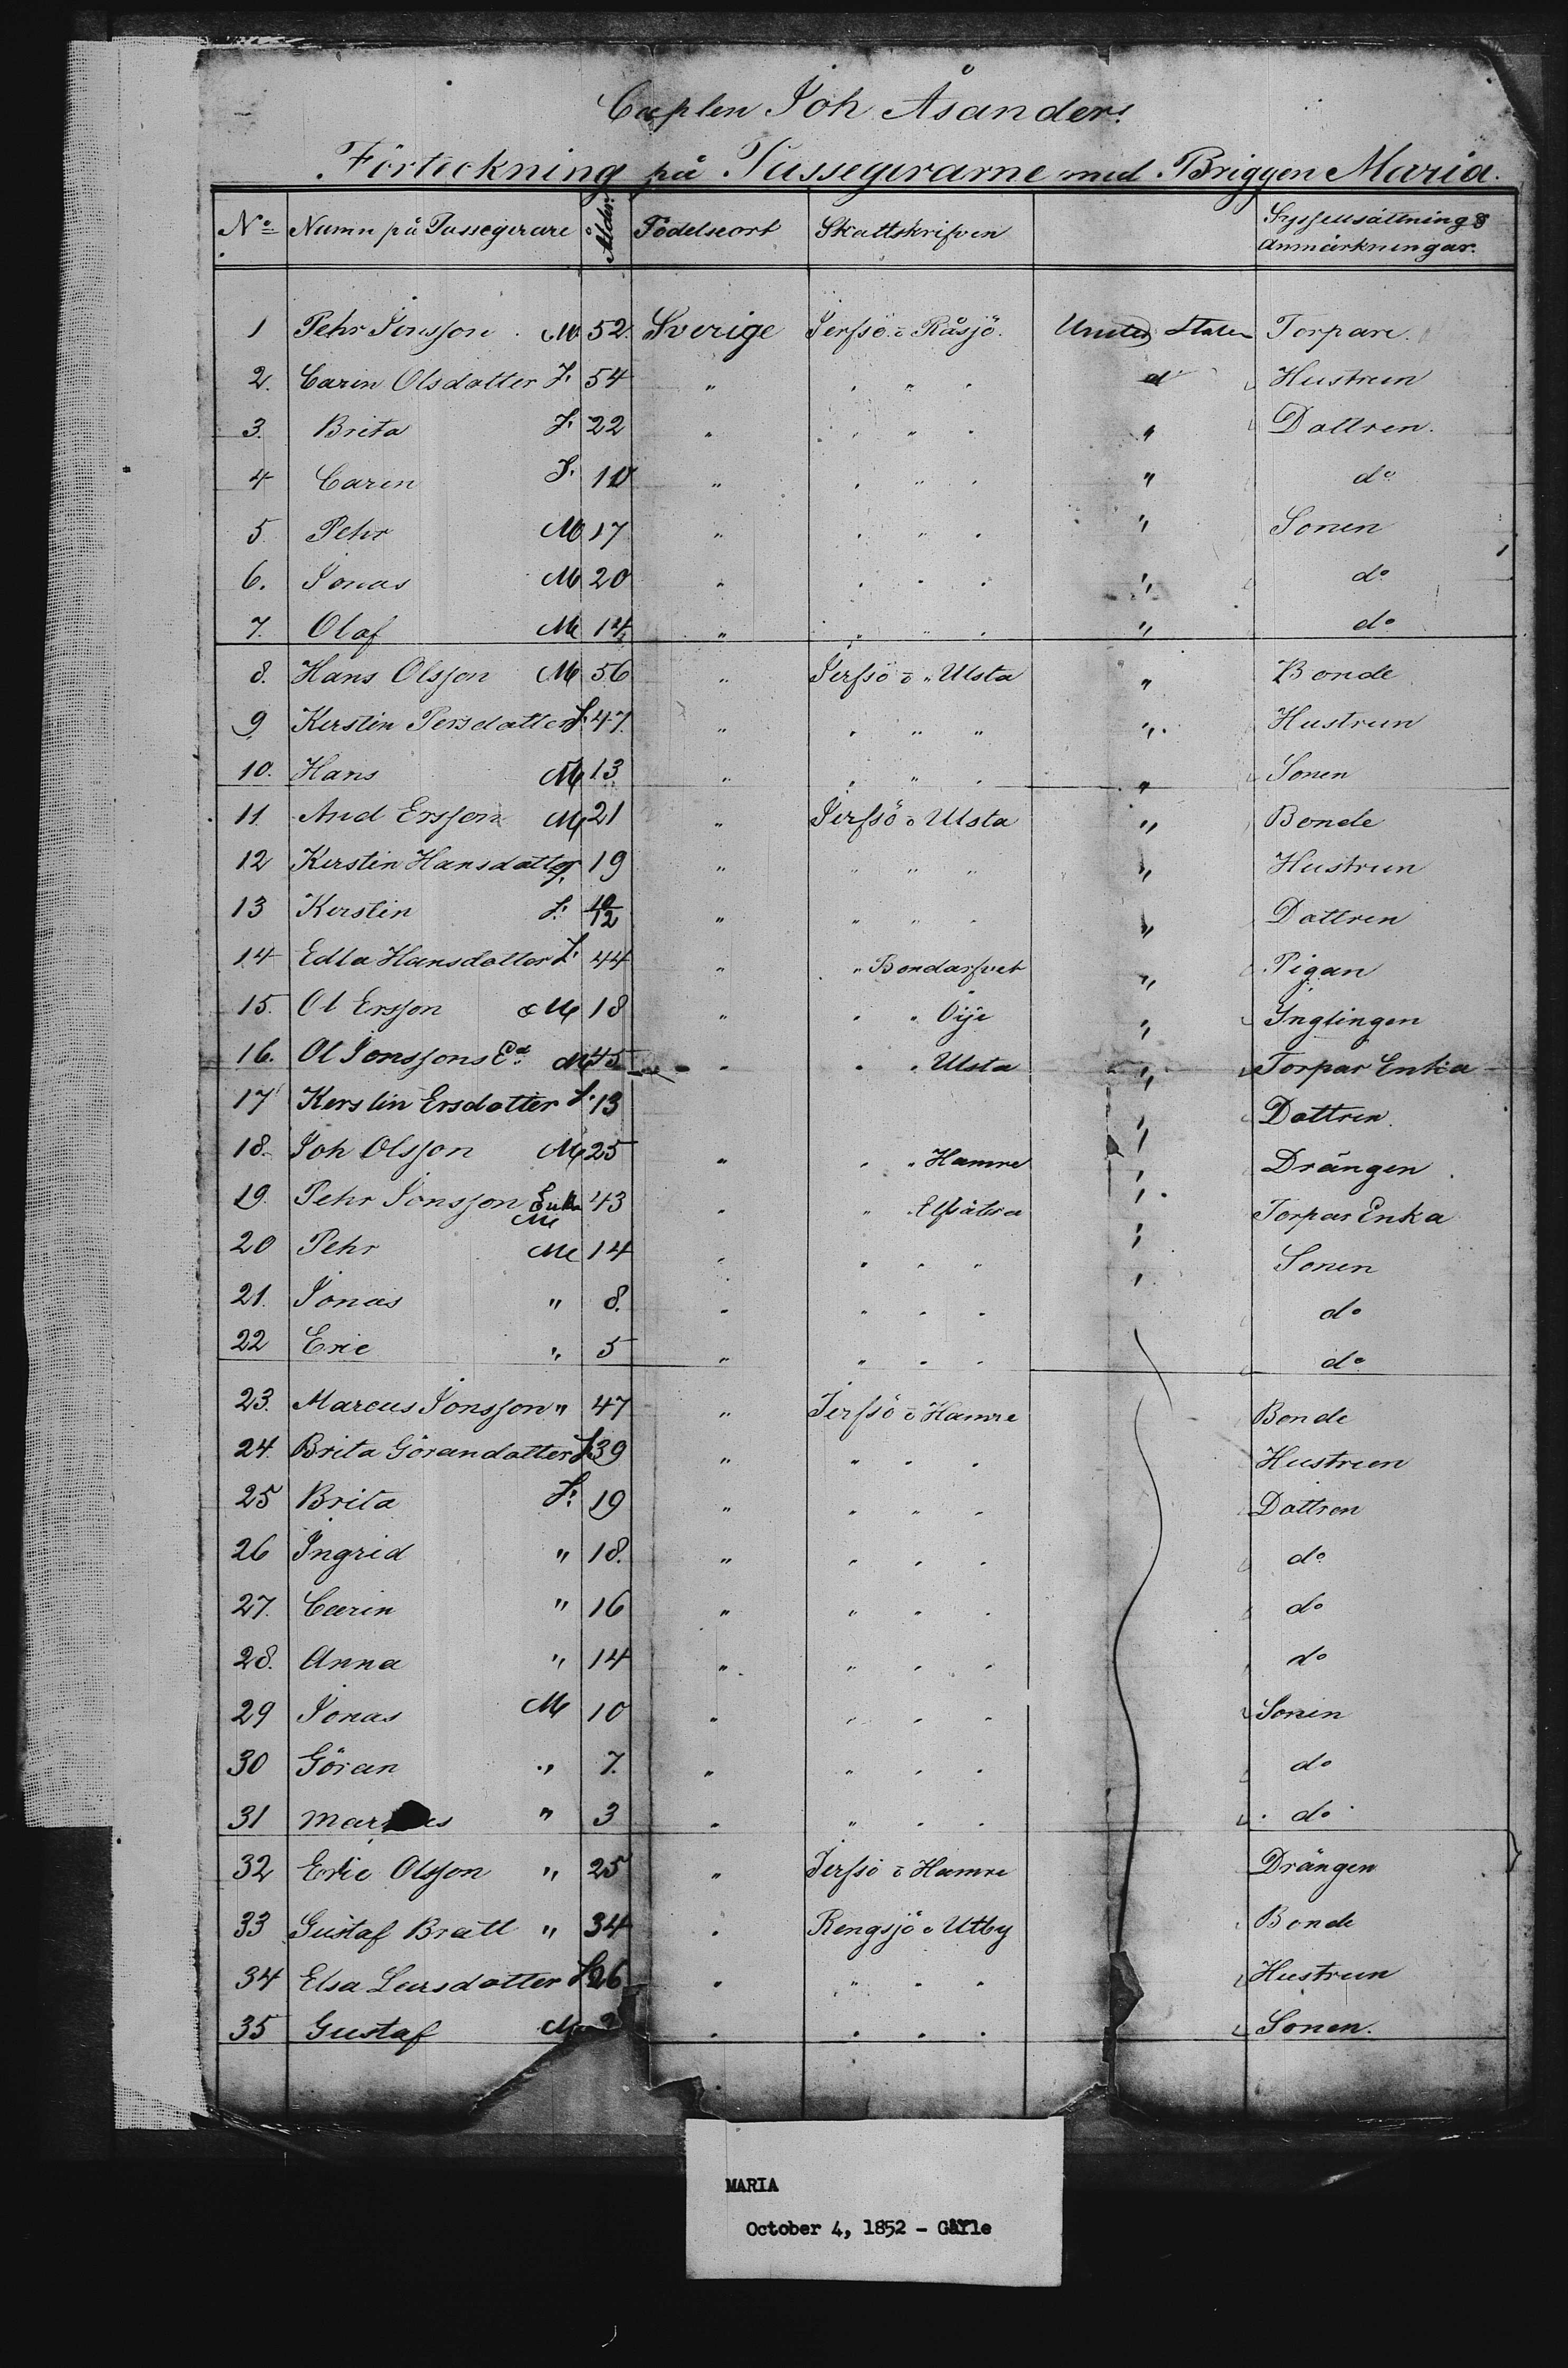 Capten Joh Åsander.
Förteckning på Passegerarne med Briggen Maria.
No. Namn på Passegerare Ålder. Födelseort Skattskrifven Sysselsättning & Anmärkningar.
1 Pehr Jonsson M 52. Sverige Jerfsö o Råsjö. United States Torpare.
2. Carin Olsdatter F. 54 " " " " do Hustrun
3. Brita F. 22 " " " " " Dottren.
4 Carin F. 10 " " " " " do
5 Pehr M 17 " " " " " Sonen
6. Jonas M 20 " " " " " do
7. Olof M 14 " " " " " do
8. Hans Olsson M 56 " Jerfsö o " Ulsta " Bonde
9 Kerstin Persdatter F. 47. " " " " " Hustrun
10. Hans M 13 " " " " " Sonen
11. And Ersson M 21 " Jerfsö o Ulsta " Bonde
12 Kerstin Hansdatter F. 19 " " " " " Hustrun
13 Kerstin F. 10/12 " " " " " Dottren
14 Edla Hansdotter F. 44 " " Bondarfvet " Pigan
15. Ol Ersson M 18 " " " Öije " Ynglingen
16. Ol Jonssons Ea M 45 " " " Ulsta " Torpar Enka
17 Kerstin Ersdotter F. 13 " Dottren.
18. Joh Olsson M 25 " " " Hamre " Drängen
19. Pehr Jonsson Enka M 43 " " " Torpar Enka
20 Pehr M 14 " " " " " Sonen
21. Jonas " 8. " " " " " do
22 Eric " 5 " " " " do
23. Marcus Jonsson " 47 " Jerfsö o Hamre Bonde
24. Brita Görandatter F. 39 " " " " Hustrun
25 Brita F. 19 " " " " Dottren
26 Ingrid " 18. " " " " do
27. Carin " 16 " " " " do
28. Anna " 14 " " " " do
29 Jonas M 10 " " " " Sonen
30 Göran " 7. " " " " do
31 Marcus " 3 " " " " do
32 Eric Olsson " 25 " Jerfsö o Hamre Drängen
33 Gustaf Bratt " 34 " Rengsjö o Utby Bonde
34 Elsa Larsdotter F. 26 " " " " Hustrun
35 Gustaf M 2 " " " " Sonen.
MARIA
October 4, 1852 - Gäfle